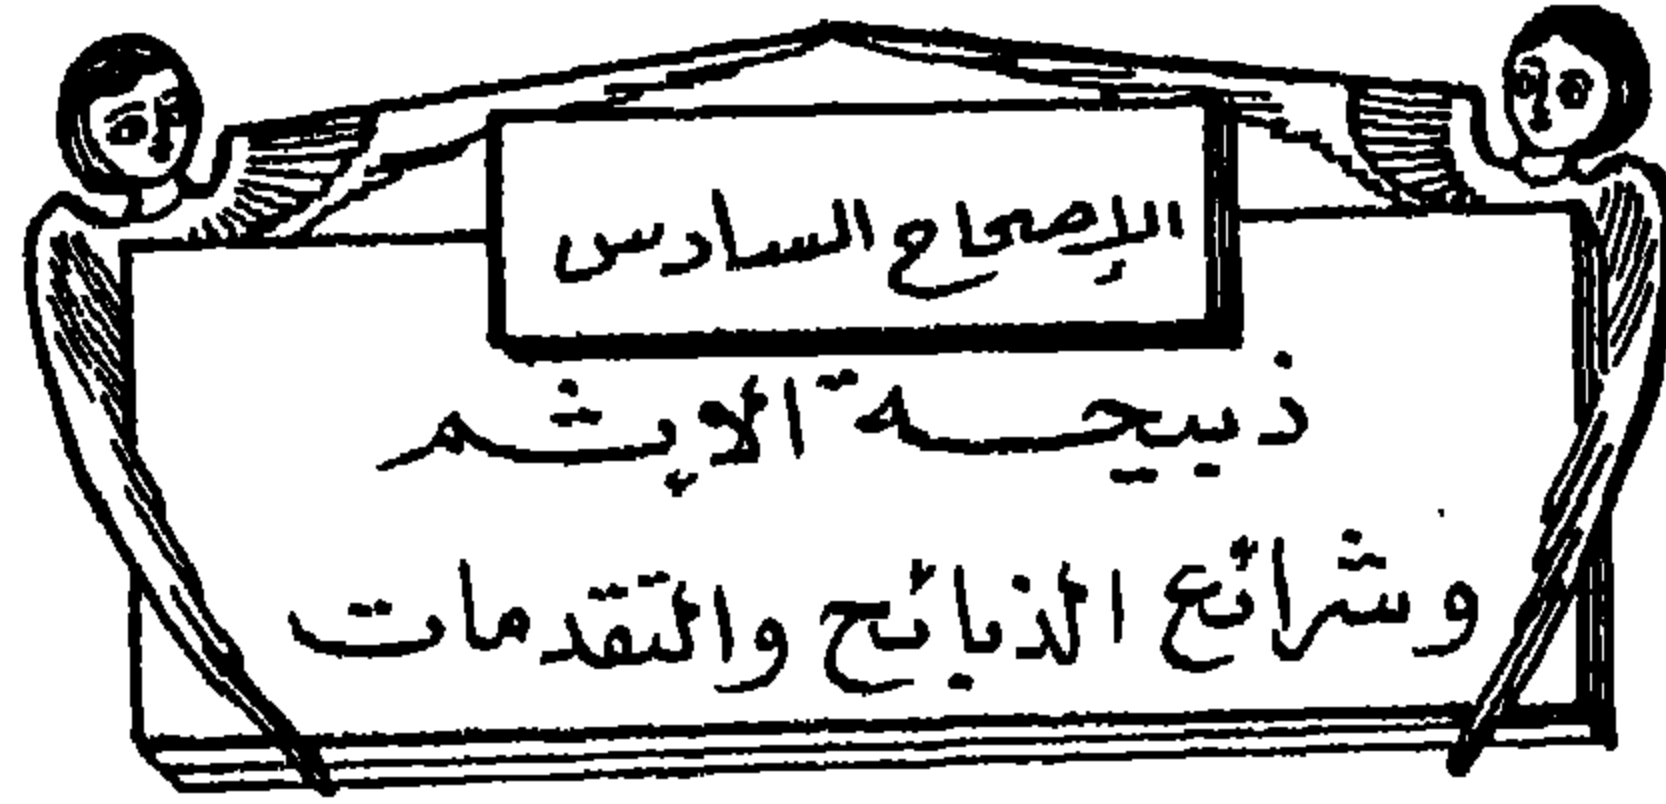 الإصحاح السادس
ذبيحة الإثم
وشرائع الذبائح والتقدمات